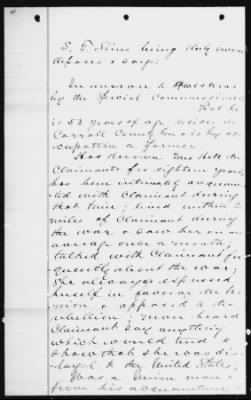 S. T. Sims being duly sworn
deposes & says:
In answer to Questions
by the Special Commissioner
That he
is 53 years of age resides in
Carroll County is by oc-
cupation a farmer.
Has known Mrs Hill the
Claimant for eighteen years;
has been intimately acquain-
ted with Claimant during
that time; lived within 2
miles of Claimant during
the war & saw her on an
average once a month;
talked with Claimant fre-
quently about the war;
She always expressed
herself in favor of the
Union & opposed to the
rebellion; never heard
Claimant say anything
which would tend to
show that she was dis-
loyal to the United States;
Was a Union man &
from his acquaintance